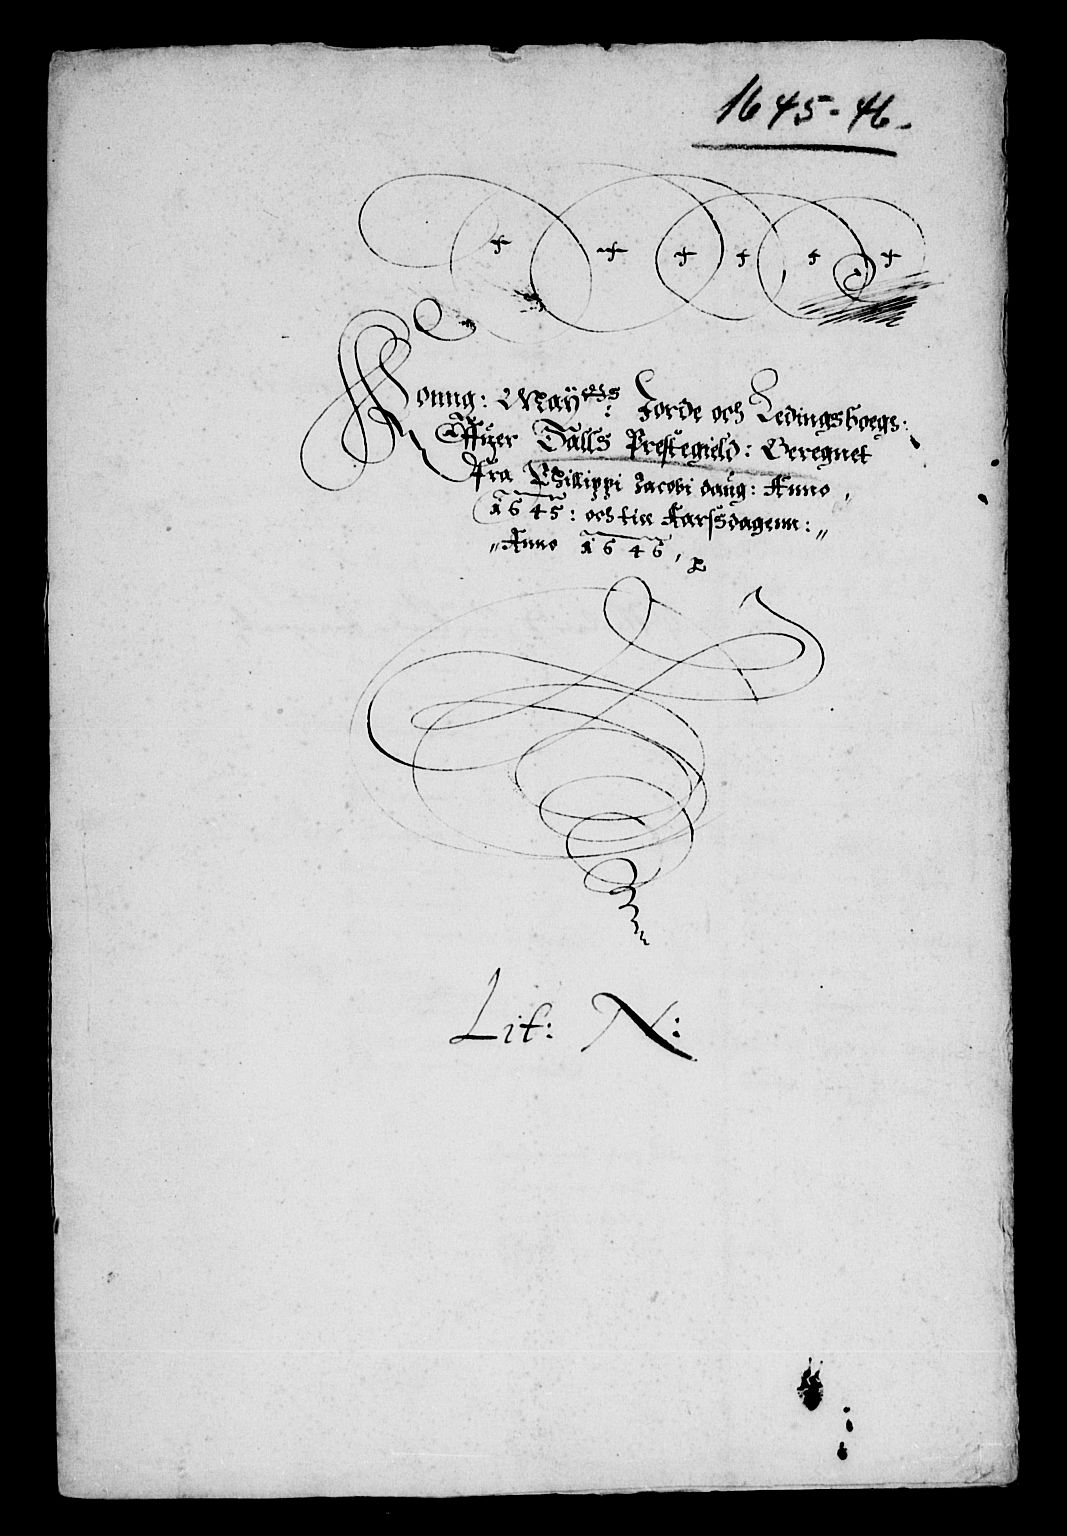 1645-46.
Konng: May:ttz Jorde och Ledingsboegs:
Offuer Dalls Prestegield: Beregnet
fra Philippi Jacobi daug: Anno
1645: och till Karsdagenn:
Anno 1646,
Lit: N: